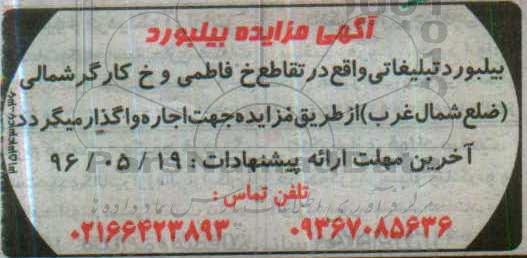 آگهی مزایده بیلبورد
بیلبورد تبلیغاتی واقع در تقاطع خ فاطمی و خ کارگر شمالی
(ضلع شمال غرب) از طریق مزایده جهت اجاره واگذار میگردد
آخرین مهلت ارائه پیشنهادات : ۹۶/۰۵/۱۹
تلفن تماس :
۰۲۱۶۶۴۲۳۸۹۳ ۰۹۳۶۷۰۸۵۶۳۶